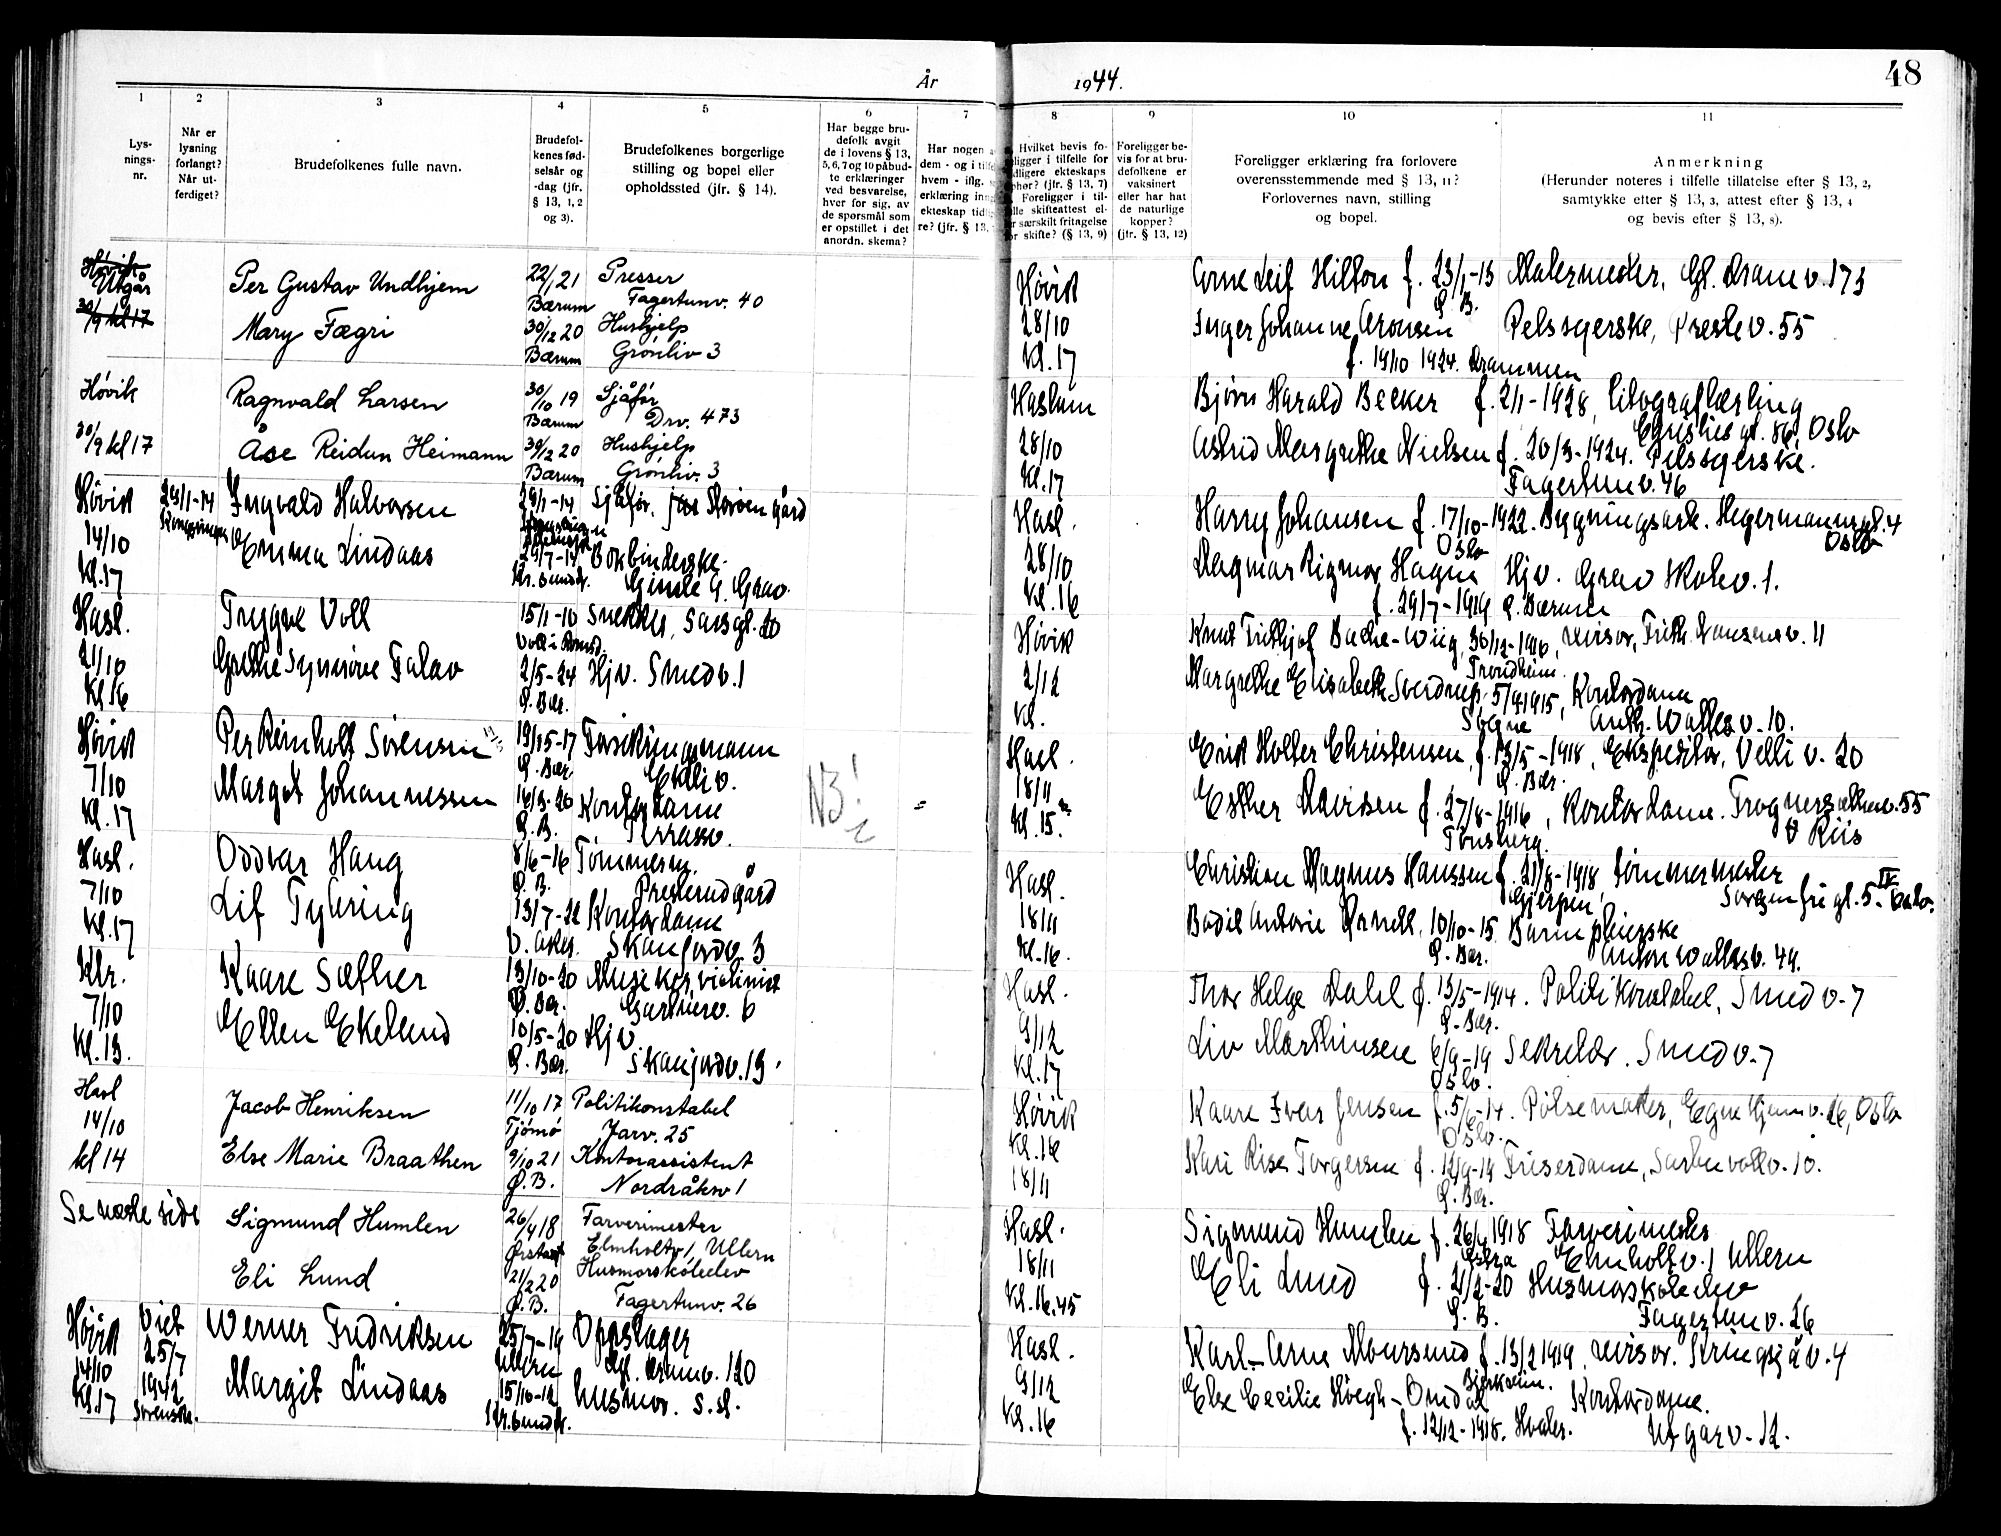 År
1944.
48
1
2
3
4
5
6
7
8
9
10
11
Lys-
nings-
nr.
Når er
lysning
forlangt?
Når ut-
ferdiget?
Brudefolkenes fulle navn.
Brudefol-
kenes fød-
selsår og
-dag (jfr.
§ 13, 1, 2
og 3).
Brudefolkenes borgerlige
stilling og bopel eller
opholdssted (jfr. § 14).
Har begge bru-
defolk avgit
de i lovens § 13,
5, 6, 7 og 10 påbud-
te erklæringer
ved besvarelse,
hver for sig, av
de spørsmål som
er opstillet i det
anordn. skema?
Har nogen a
dem - og i tilfe
hvem - iflg.
erklæring inng
ekteskap tidli
re? (jfr. § 13,
Hvilket bevis fo-
religger i tilfelle for
tidligere ekteskaps
ophør? (jfr. § 13, 7)
Foreligger i til-
felle skifteattest el-
ler særskilt fritagelse
for skifte? (§ 13, 9)
Foreligger be-
vis for at bru-
defolkene er
vaksinert
eller har hat
de naturlige
kopper?
(jfr. § 13, 12)
Foreligger erklæring fra forlovere
overensstemmende med § 13, 11?
Forlovernes navn, stilling
og bopel.
Anmerkning
(Herunder noteres i tilfelle tillatelse efter § 13, 2,
samtykke efter § 13, 3, attest efter § 13, 4
og bevis efter § 13, 8).
Høvik
Utgår
30/9 kl 17
Per Gustav Undhjem 22/1 21 Presser
Bærum Fagertunv. 40
Mary Fægri 30/12 20 Hushjelp
Bærum Grønliv 3
Høvik Ragnvald Larsen 30/10 19 Sjåfør
Bærum Drv. 473
30/9 kl 17 Åse Reidun Heimann 30/2 20 Hushjelp
Bærum Grønliv. 3
Høvik Ingvald Halvorsen 29/1-14 Sjåfør. Storøen gård
14/10 Emma Lindaas 29/7-14 Bokbinderske.
Kl. 17 Kr.sundt. G. Grav.
Hasl. Trygve Voll 15/1-10 Snekker, Sarsgt. 20
21/10 Grethe Synnøve Falav 2/5-24 Hjv. Smedv. 1
Kl 16 Ø. Bær.
Høvik Per Reinholt Sørensen 19/5-17 Forsikringsmann
7/10 Ø. Bær. Eikliv.
Kl. 17 Margot Johannessen 16/3-20 Kontordame
Ø. B. Terrassev.
N3!
Hasl. Oddvar Haug 8/6-16 Tømmerm.
7/10 Ø. B. Presterud gård
Kl. 17 Lif Tybring 13/7-22 Kontordame
V. Aker. Skanjordv. 3
Klr. Kaare Sæther 13/10-20 Musiker, violinist
7/10 Ø. Bær. Gartnerv. 6
Kl. 13. Ellen Ekelund 10/5-20 Hjv.
Ø. Bær. Skanjordv. 13.
Hasl Jacob Henriksen 11/10 17 Politikonstabel
14/10 Tjømø Jarv. 25
kl 14 Else Marie Braathen 9/10 21 Kontorassistent
Ø. B. Nordråksv 1
Se neste side Sigmund Humlen 26/4 18 Farverimester
Elmholtv 1, Ullern
Eli Lund 21/2 20 Husmorskoleelev
Ø. B. Fagertunv. 26
Høvik Viet Werner Fredriksen 25/7-19 Oppslager
14/10 25/7 Ullern Gl. Drmv. 120
Kl. 17 1942 Margit Lindaas 15/10-12 husmor. s.st.
Sørensen. Kr.sundt.
Høvik Arne Leif Hilton f. 23/1-13 Malermester, Gl. Dramv. 173
Ø. B.
28/10 Inger Johanne Aronsen Pelssyerske, Prestev. 55
Kl. 17 f. 19/10 1924. Drammen
Haslum Bjørn Harald Becker f. 2/1-1928, Litograflærling
Christies gt. 86, Oslo
28/10 Astrid Margrethe Nielsen f. 20/3-1924. Pelssyerske.
Kl. 17 Fagertunv. 46
Hasl. Harry Johansen f. 17/10-1922. Bygningsark. Hegermannsgt. 4
Oslo Oslo
28/10 Dagmar Rigmor Hagne Hjv. Grav Skolev. 1.
Kl. 16 f. 29/7-1919 Ø. Bærum
Høvik Knut Frithjof Bache-Wiig, 30/12-1916, revisor, Frith. Nansens v. 11
Trondheim.
2/12 Margrethe Elisabeth Sverdrup 5/4 1915, Kontordame
Kl. Søgne Anth. Walles v. 10.
Hasl. Erik Holter Christensen, f. 13/5-1918, Ekspeditør, Velli v. 20
Ø. Bær.
18/11 Esther Davidsen f. 27/8-1916, Kontordame. Trognersætherv. 55
Kl. 15. Tønsberg. v Riis
Hasl. Christian Magnus Hanssen f. 21/8-1918, tømmermester
Gjerpen, Sorgenfrigt. 5 IV Oslo.
18/11 Bodil Antonie 10/10-15 Barnepleierske
Kl. 16. Ø. Bær. Anton Wallesv. 44.
Hasl. Thor Helge Dahl f. 13/5-1914. Politikonstabel, Smedv. 7
Ø. Bær.
9/12 Liv Marthinsen 6/9-19 Sekretær. Smedv. 7
Kl. 17 Oslo.
Høvik Kaare Ivar Jensen f. 5/6-14. Pølsemaker, Egne Hjemv. 26, Oslo
Kl. 16 Oslo.
18/11 Kari Riise Torgersen f. 12/9-19 Friserdame, Sarbuvollv. 10.
Ø. Bær.
Hasl. Sigmund Humlen f. 26/4 1918 Farverimester
18/11 Elmholtv. 1 Ullern
Kl. 16.45 Eli Lund f. 21/2-20 Husmorskoleelev
Ø. B. Fagertunv. 26
Hasl. Karl-Arne Moursund f. 13/2 1919, revisor. Kringsjåv. 4
9/12 Bjerkreim.
Else Cecilie Høegh-Omdal Kontordame.
Kl. 16 f. 12/12-1918. Hvaler. Utgarv. 12.